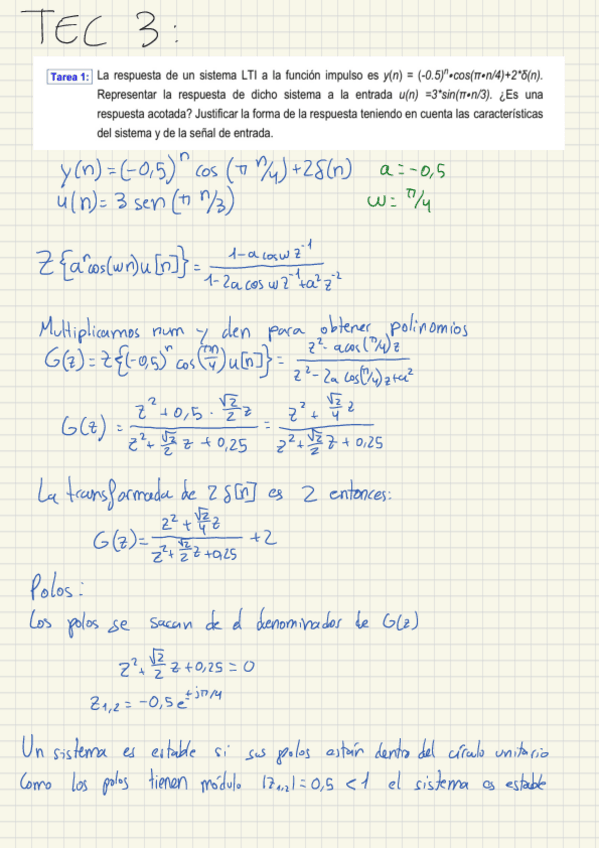 TEC 3:
Tarea 1: La respuesta de un sistema LTI a la función impulso es y(n) = (-0.5)ⁿ•cos(π•n/4)+2*δ(n).
Representar la respuesta de dicho sistema a la entrada u(n) =3*sin(π•n/3). ¿Es una
respuesta acotada? Justificar la forma de la respuesta teniendo en cuenta las características
del sistema y de la señal de entrada.
y(n)=(-0,5)ⁿ cos(π n/4)+2δ(n) a=-0,5
u(n)=3 sen(π n/3) ω=π/4
Z{aⁿcos(ωn)u[n]}= (1-a cosω z⁻¹)/(1-2a cos ω z⁻¹+a² z⁻²)
Multiplicamos num y den para obtener polinomios
G(z)=Z{(-0,5)ⁿ cos(πn/4)u[n]}= (z²-acos(π/4)z)/(z²-2a cos(π/4)z+a²)
G(z)= (z²+0,5·√2/2 z)/(z²+√2/2 z+0,25) = (z²+√2/4 z)/(z²+√2/2 z+0,25)
La transformada de 2δ[n] es 2 entonces:
G(z)= (z²+√2/4 z)/(z²+√2/2 z+0,25) +2
Polos:
Los polos se sacan de el denominador de G(z)
z²+√2/2 z+0,25=0
z₁,₂=-0,5e^(±jπ/4)
Un sistema es estable si sus polos están dentro del círculo unitario
Como los polos tienen módulo |z₁,₂|=0,5<1 el sistema es estable